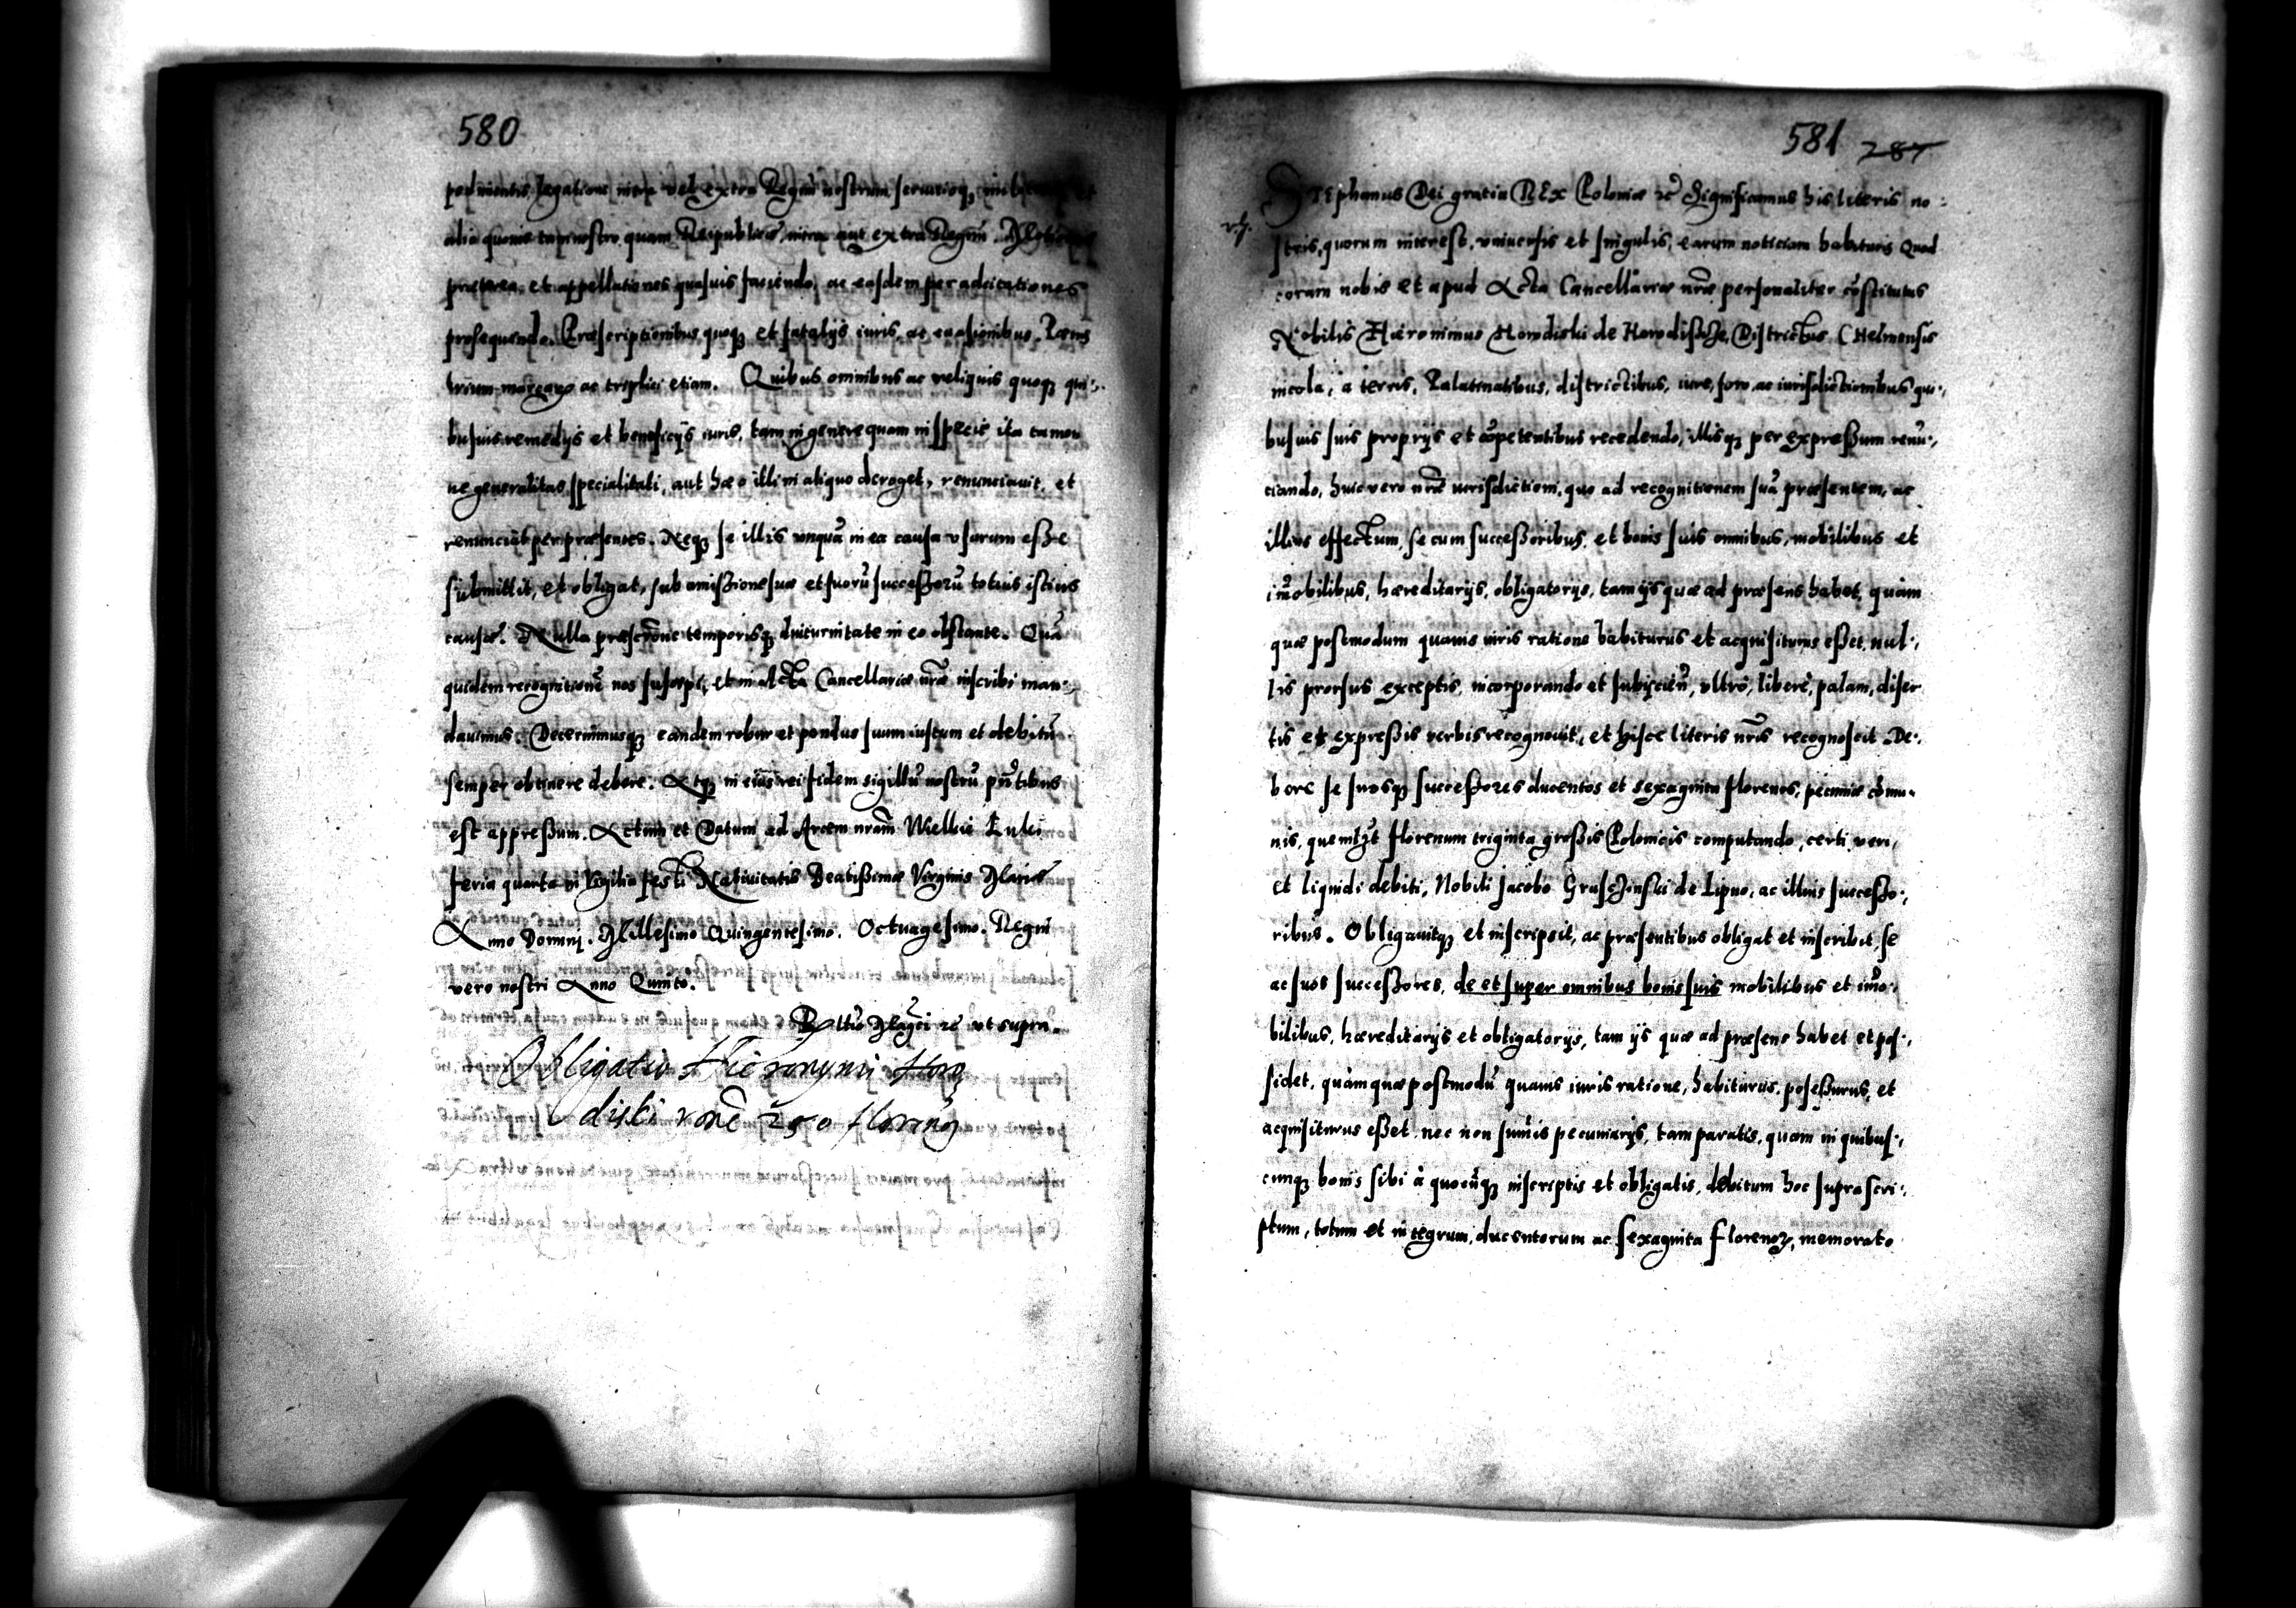 580
pedimentis, legatione intra vel extra Regnũ nostrum, servitioq;
alia quovis tam nostro quam Reipublicæ, intra aut extra Regnũ.
præterea, et appellationes quasvis faciendo, ac easdem per adcitationes
prosequendo. Præscriptionibus quoq; et fatalijs iuris, ac evasionibus.
ac triplici etiam. Quibus omnibus ac reliquis quoq; qui-
busvis remedijs et beneficijs iuris, tam in genere quam in specie ita tamen
ne generalitas specialitati, aut hæc illi in aliquo deroget, renunciavit, et
renunciat per præsentes. Neq; se illis unquã in ea causa usurum esse
submittit, et obligat, sub amissione suæ et suorũ successorũ totius istius
causæ. Nulla præscrõne temporisq; diuturnitate in eo obstante. Quã
quidem recognitionẽ nos suscepi, et in Acta Cancellariæ nrãe inscribi man-
davimus. Decernimusq; eandem robur et pondus suum iustum et debitũ
semper obtinere debere. Atq; in eius rei fidem sigillũ nostrũ pñtibus
est appressum. Actum et Datum ad Arcem nrãm Wielkie Luki
feria quarta in Vigilia festi Nativitatis Beatissimæ Virginis Mariæ
Anno Domini. Millesimo Quingentesimo. Octuagesimo. Regni
vero nostri Anno Quinto.
ut supra.
Obligatio Hieronymi Horo
diski rõne 250 florenoꝝ
581 287
STEphanus Dei gratia REx Poloniæ ꝛc̃ Significamus his literis no-
stris, quorum interest, universis et singulis, earum noticiam habituris Quod
coram nobis et apud Acta Cancellariæ nrãe personaliter cõstitutus
Nobilis Hieronimus Horodiski de Horodiszcze, Districtus CHelmensis
incola, a terris, Palatinatibus, districtibus, iure, foro, ac iurisdictionibus qui-
busvis suis proprijs et cõpetentibus recedendo, illisq; per expressum renũ-
ciando, huic vero nrãe iurisdictioni, quo ad recognitionem suã præsentem, ac
illius effectum, se cum successoribus, et bonis suis omnibus, mobilibus et
im̃obilibus, hæreditarijs, obligatorijs, tam ijs quæ ad præsens habet, quàm
quæ postmodum quavis iuris ratione habiturus et acquisiturus esset, nul-
lis prorsus exceptis, incorporando et subijcieñ, ultrò, liberè, palam, diser
tis et expressis verbis recognovit, et hisce literis nrĩs recognoscit De-
bere se suosq; successores ducentos et sexaginta florenos, pecuniæ cõmu-
nis, quemlꝫt florenum triginta grossis Polonicis computando, certi veri,
et liquidi debiti, Nobili Jacobo Gruszczinski de Lipno, ac illius successo-
ribus. Obligavitq; et inscripsit, ac præsentibus obligat et inscribit, se
ac suos successores, de et super omnibus bonis suis mobilibus et im̃o-
bilibus, hæreditarijs et obligatorijs, tam ijs quæ ad præsens habet et pos-
sidet, quàm quæ postmodũ quavis iuris ratione, habiturus, posessurus, et
acquisiturus esset, nec non sum̃is pecuniarijs, tam paratis, quam in quibus-
cunq; bonis sibi à quocũq; inscriptis et obligatis, debitum hoc suprascri-
ptum, totum et integrum, ducentorum ac sexaginta florenoꝝ, memorato